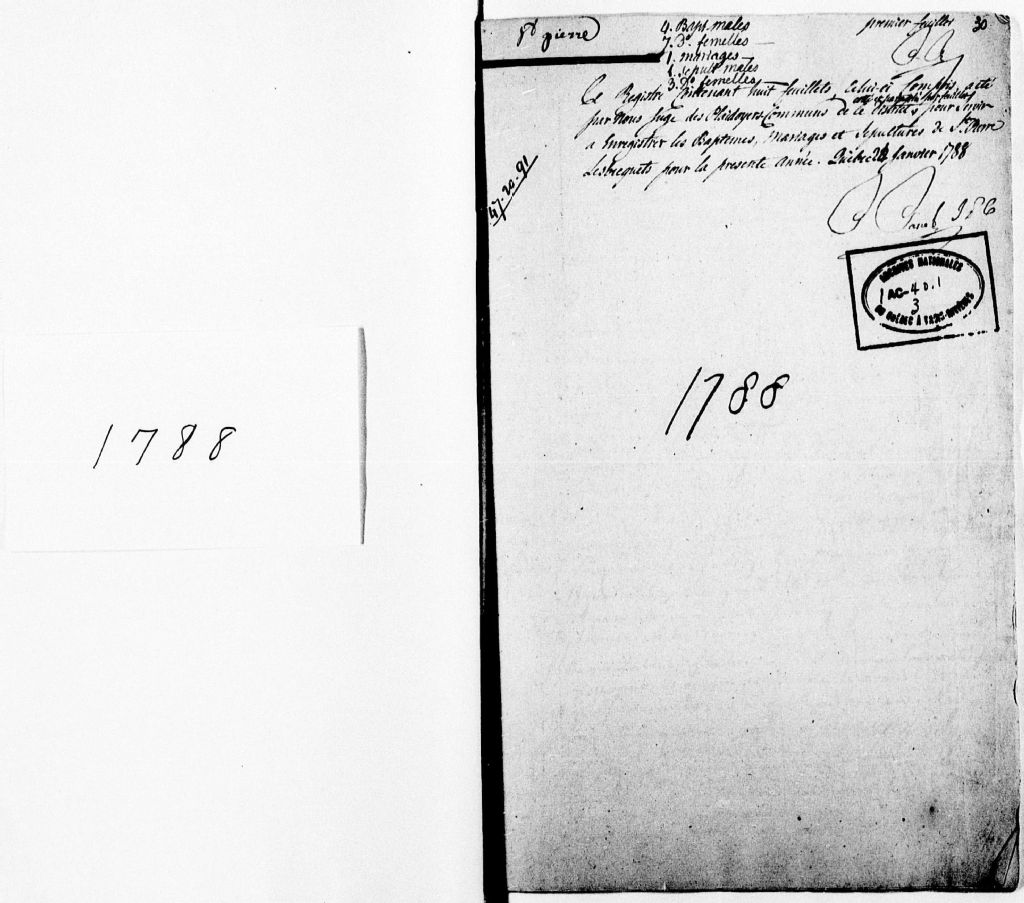 1788
St pierre
4. Bapt. males
7. Do. femelles
1. mariages
1. sepult males
3. Do femelles
premier feuillet
30
Ce Registre Contenant huit feuillets, Celui-ci Compris, a été
par Nous Juge des Plaidoyers Communs de le District pour Servir
a Enregistrer les Baptemes, Mariages et Sepultures de St. Pierre
Lesbequets pour la presente année. Québec Janvier 1788
47-20-91
ARCHIVES NATIONALES
AC-40.1
3
DU QUÉBEC À TROIS-RIVIÈRES
1788